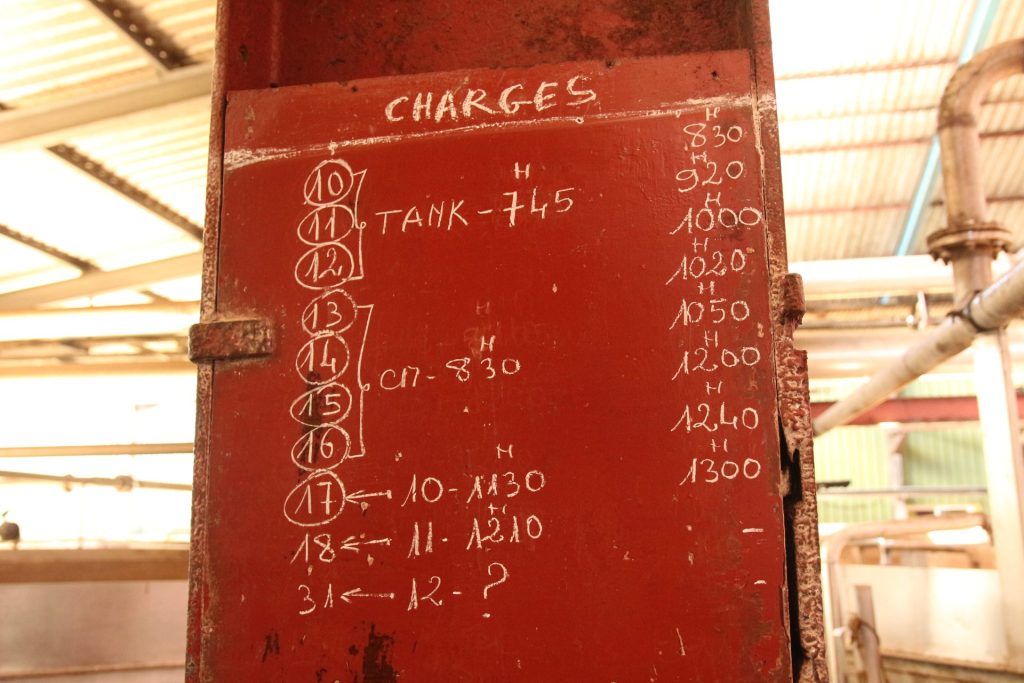 CHARGES
10 H 8H30
11 TANK - 7H45 9H20
12 10H00
10H20
13 10H50
14 CM - 8H30 12H00
15 12H40
16 13H00
17 ← 10 - 11H30
18 ← 11 - 12H10 -
31 ← 12 - ? -